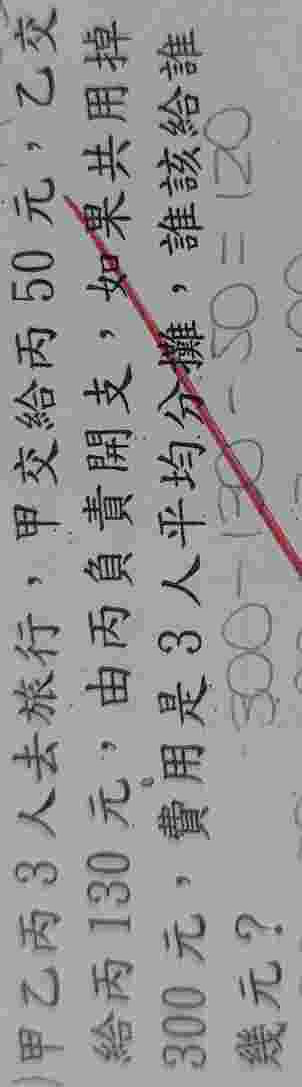 )甲乙丙3人去旅行，甲交給丙50元，乙交
給丙130元，由丙負責開支，如果共用掉
300元，費用是3人平均分攤，誰該給誰
300-130-50=120
幾元？